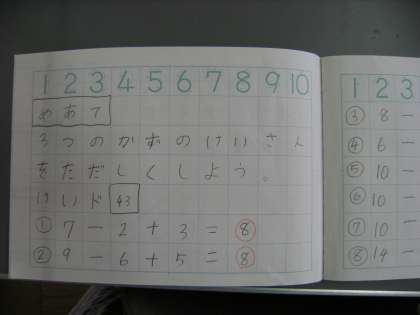 1 2 3 4 5 6 7 8 9 10
めあて
3つのかずのけいさん
をただしくしよう。
けいド 43
① 7 - 2 + 3 = 8
② 9 - 6 + 5 = 8
1 2 3
③ 8 -
④ 6 -
⑤ 10 -
⑥ 10 -
⑦ 10 -
⑧ 14 -